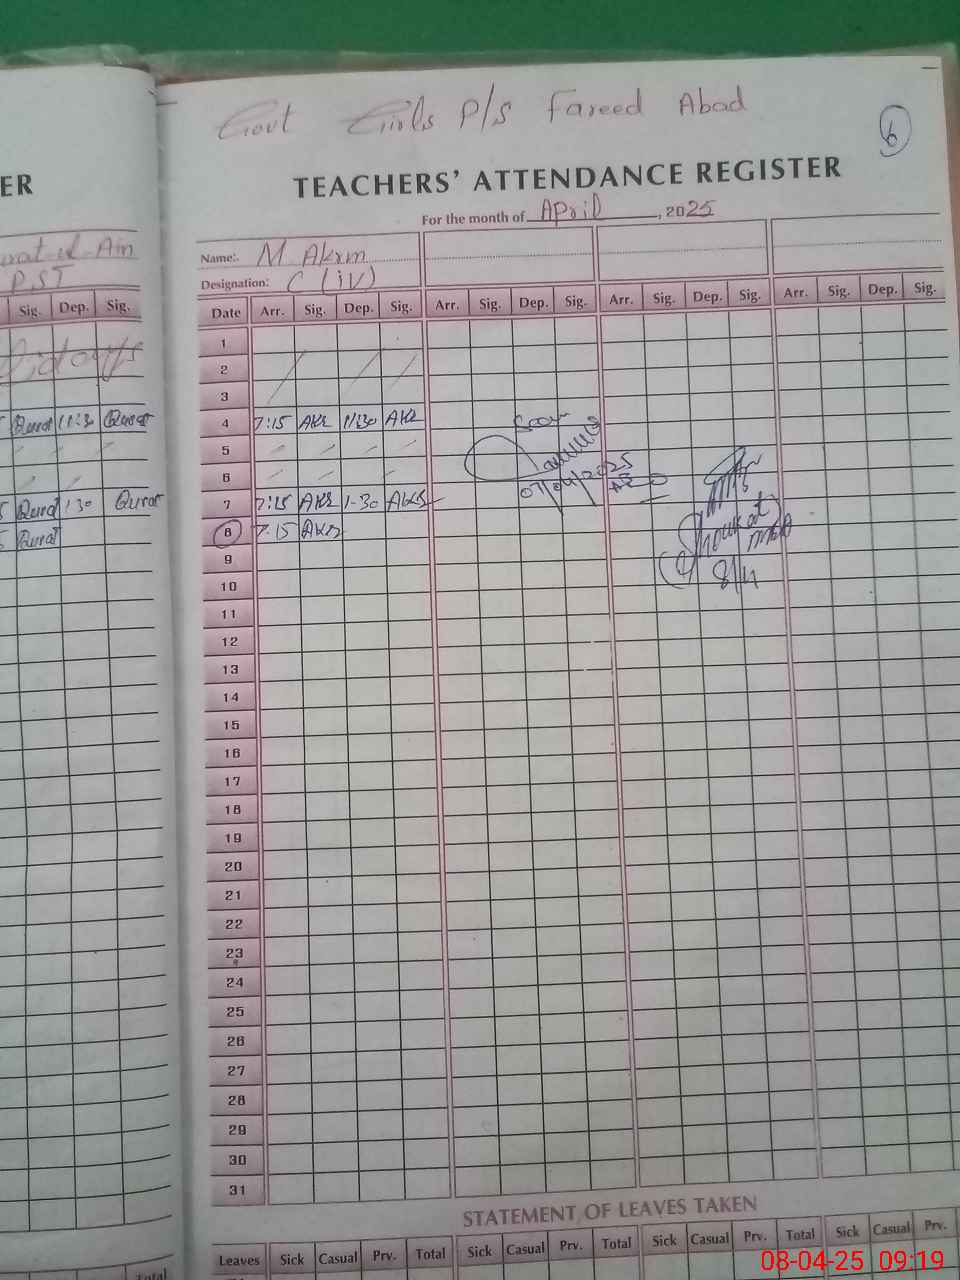 Govt Girls P/S Fareed Abad
6
ER
TEACHERS' ATTENDANCE REGISTER
For the month of April, 2025
Ain
PST
Name:. M Akrm
Designation: C (iv)
Sig. Dep. Sig.
Date Arr. Sig. Dep. Sig. Arr. Sig. Dep. Sig. Arr. Sig. Dep. Sig. Arr. Sig. Dep. Sig.
1
2
3
Qurat 11:30 Qurat
4 7:15 AKR 11:30 AKR
Seen
5
6
07/04/2025
AEO
Qurat 1:30 Qurat
7 7:15 AKR 1-30 AKR
Qurat
8 7:15 AKR
Shoukat
9
8/4
10
11
12
13
14
15
16
17
18
19
20
21
22
23
24
25
26
27
28
29
30
31
STATEMENT OF LEAVES TAKEN
Total
Leaves Sick Casual Prv. Total Sick Casual Prv. Total Sick Casual Prv. Total Sick Casual Prv.
08-04-25 09:19